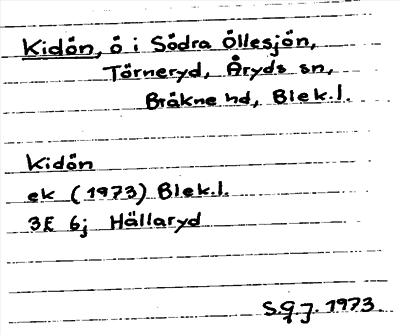 Kidön, ö i Södra Öllesjön,
Törneryd, Åryds sn,
Bräkne hd, Blek.l.
Kidön
ek (1973) Blek.l.
3E 6j Hällaryd
S.G.J. 1973.